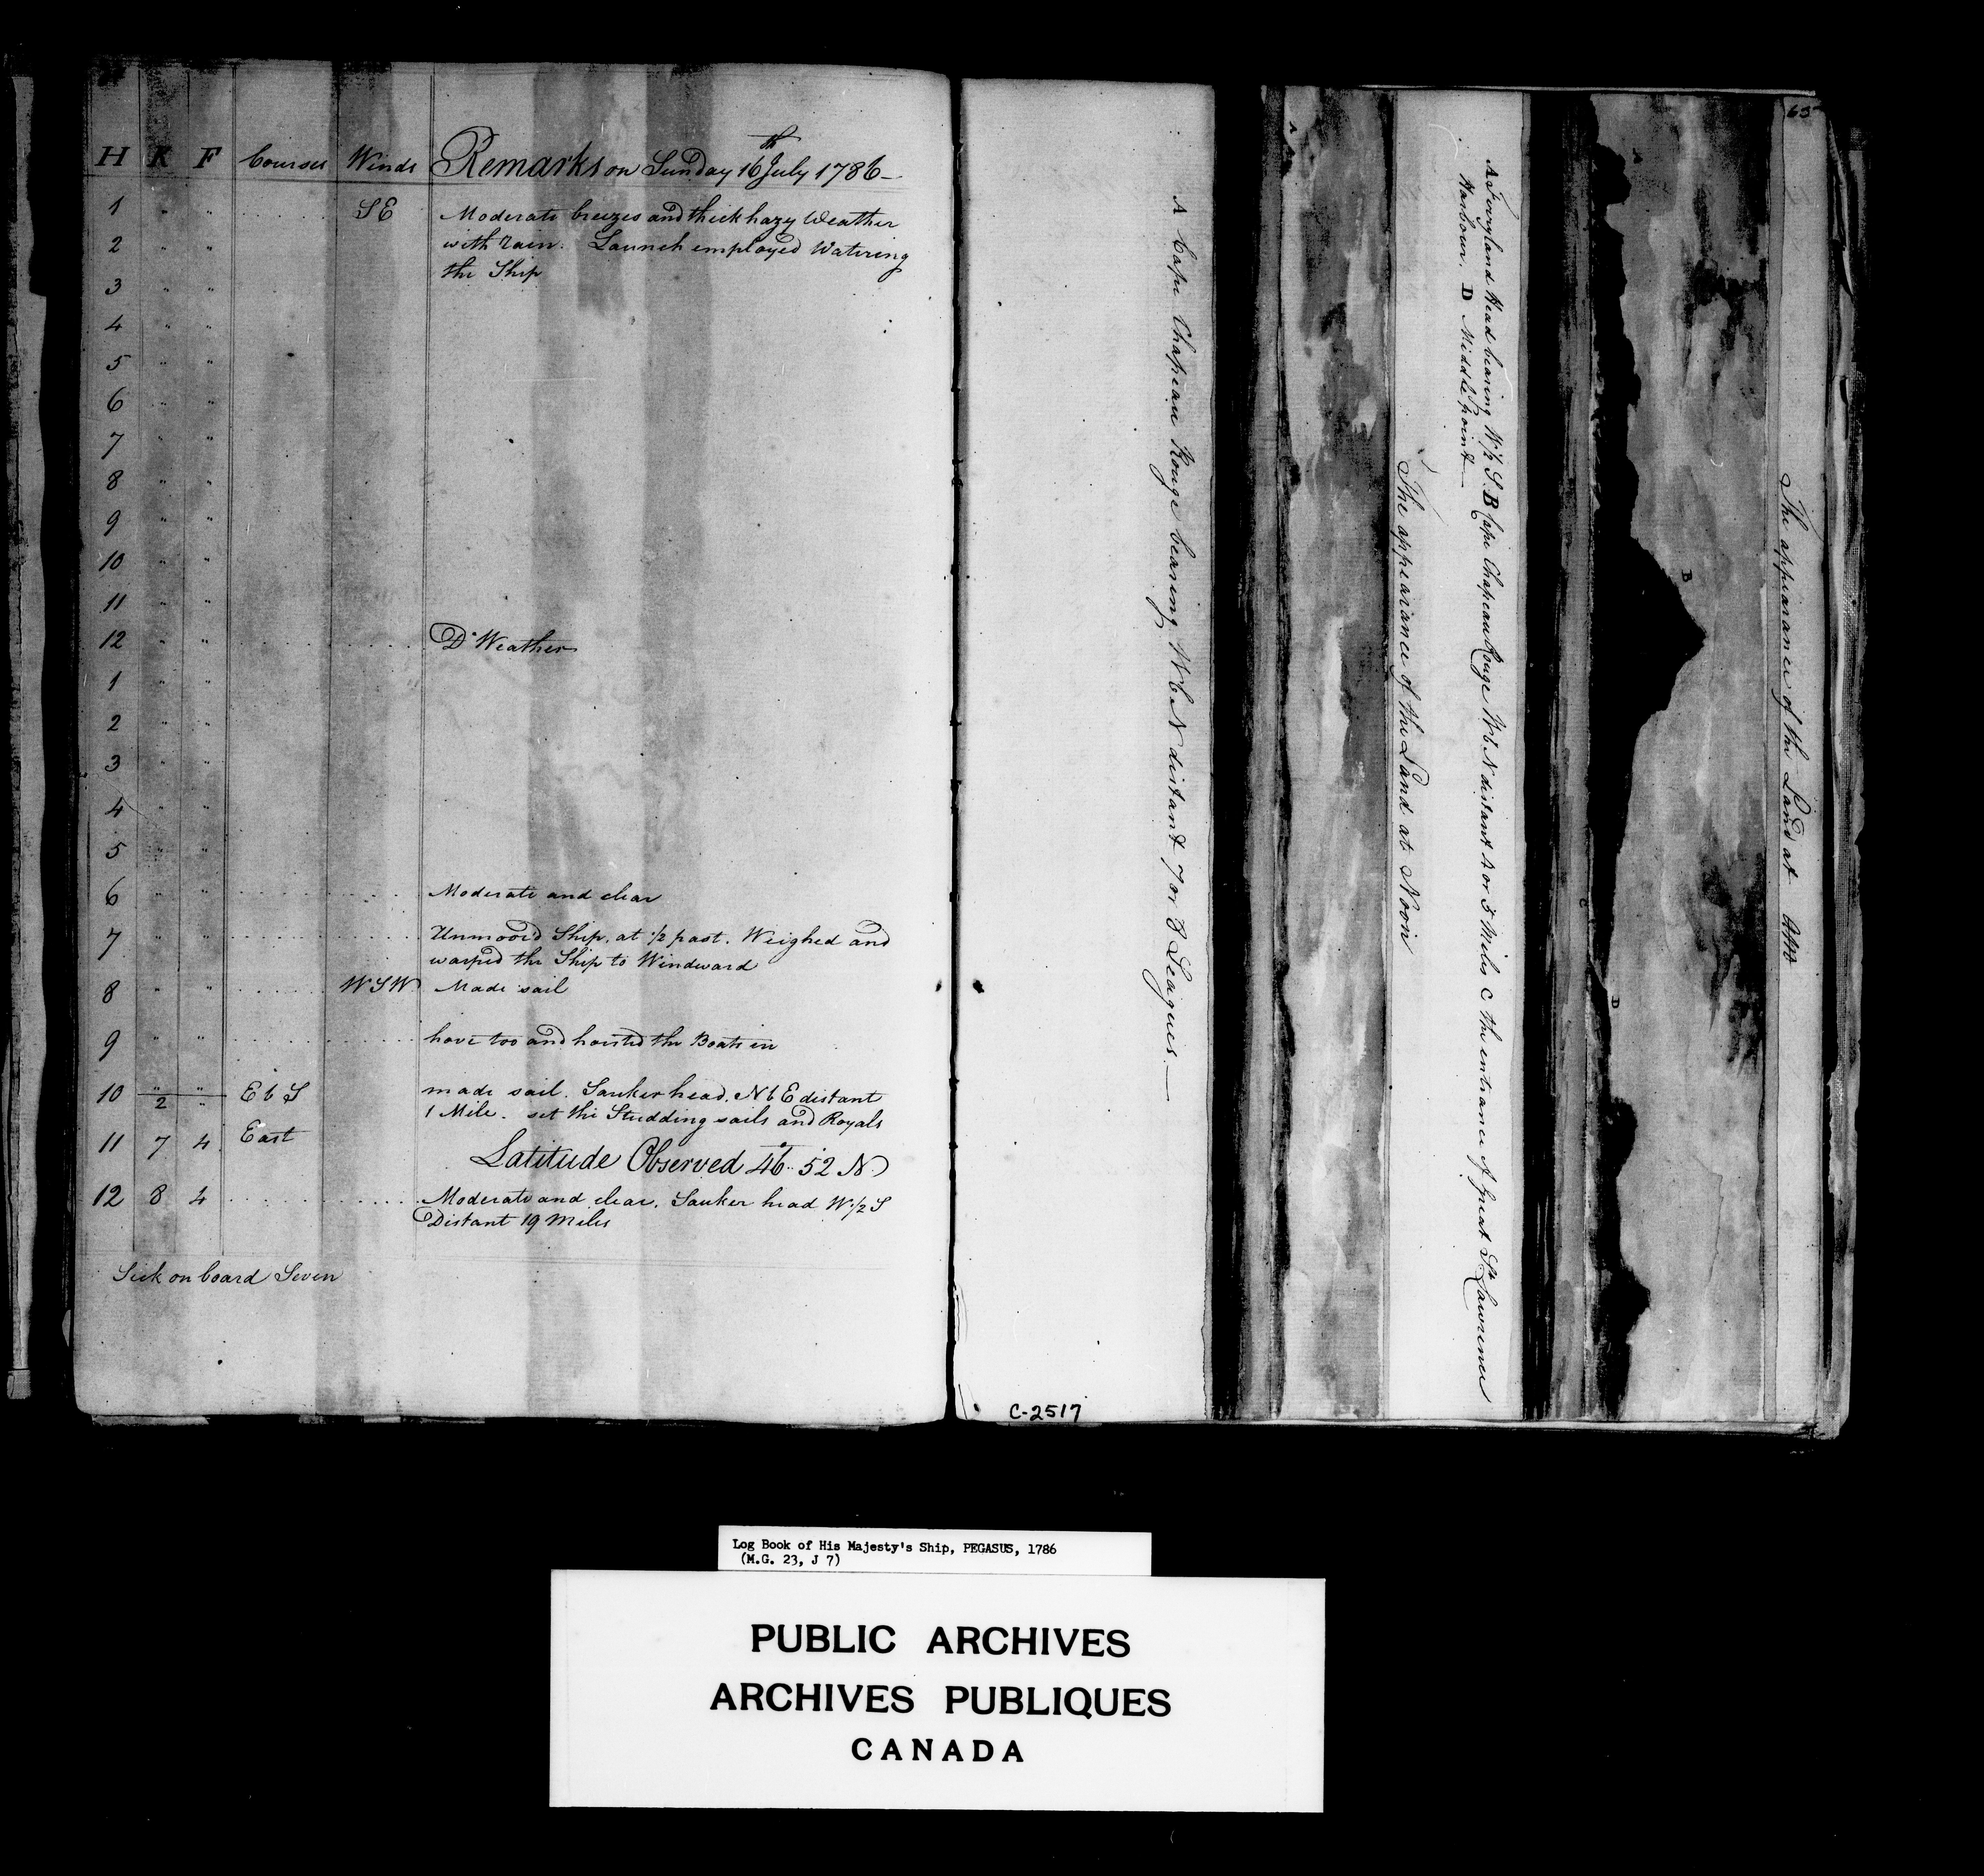 H K F Courses Winds Remarks on Sunday 16th July 1786
1 " " SE Moderate breezes and thick hazy Weather
2 " " with rain. Launch employed Watering
the Ship
3 " "
4 " "
5 " "
6 " "
7 " "
8 " "
9 " "
10 " "
11 " "
12 " " Do Weather
1 " "
2 " "
3 " "
4 " "
5 " "
6 " " Moderate and clear
7 " " Unmoor'd Ship, at 1/2 past. Weighed and
warped the Ship to Windward
8 " " WSW Made sail
9 " " hove too and hoisted the Boats in
10 " " EbS made sail. Sauker head. NbE distant
2 " 1 Mile. set the Studding sails and Royals
11 7 4 East
Latitude Observed 46°.. 52 N
12 8 4 Moderate and clear. Sauker head W 1/2 S
Distant 19 Miles
Sick on board Seven
65
The appearance of the Land at
B
A
D
C
A Ferryland Head bearing W 1/2 S. B Cape Chapeau Rouge WbN distant 4 or 5 Miles C the entrance of great St Lawrence
Harbour. D Middle point
The appearance of the Land at Noon
A
A Cape Chapeau Rouge bearing WbN distant 7 or 8 Leagues.
C-2517
Log Book of His Majesty's Ship, PEGASUS, 1786
(M.G. 23, J 7)
PUBLIC ARCHIVES
ARCHIVES PUBLIQUES
CANADA